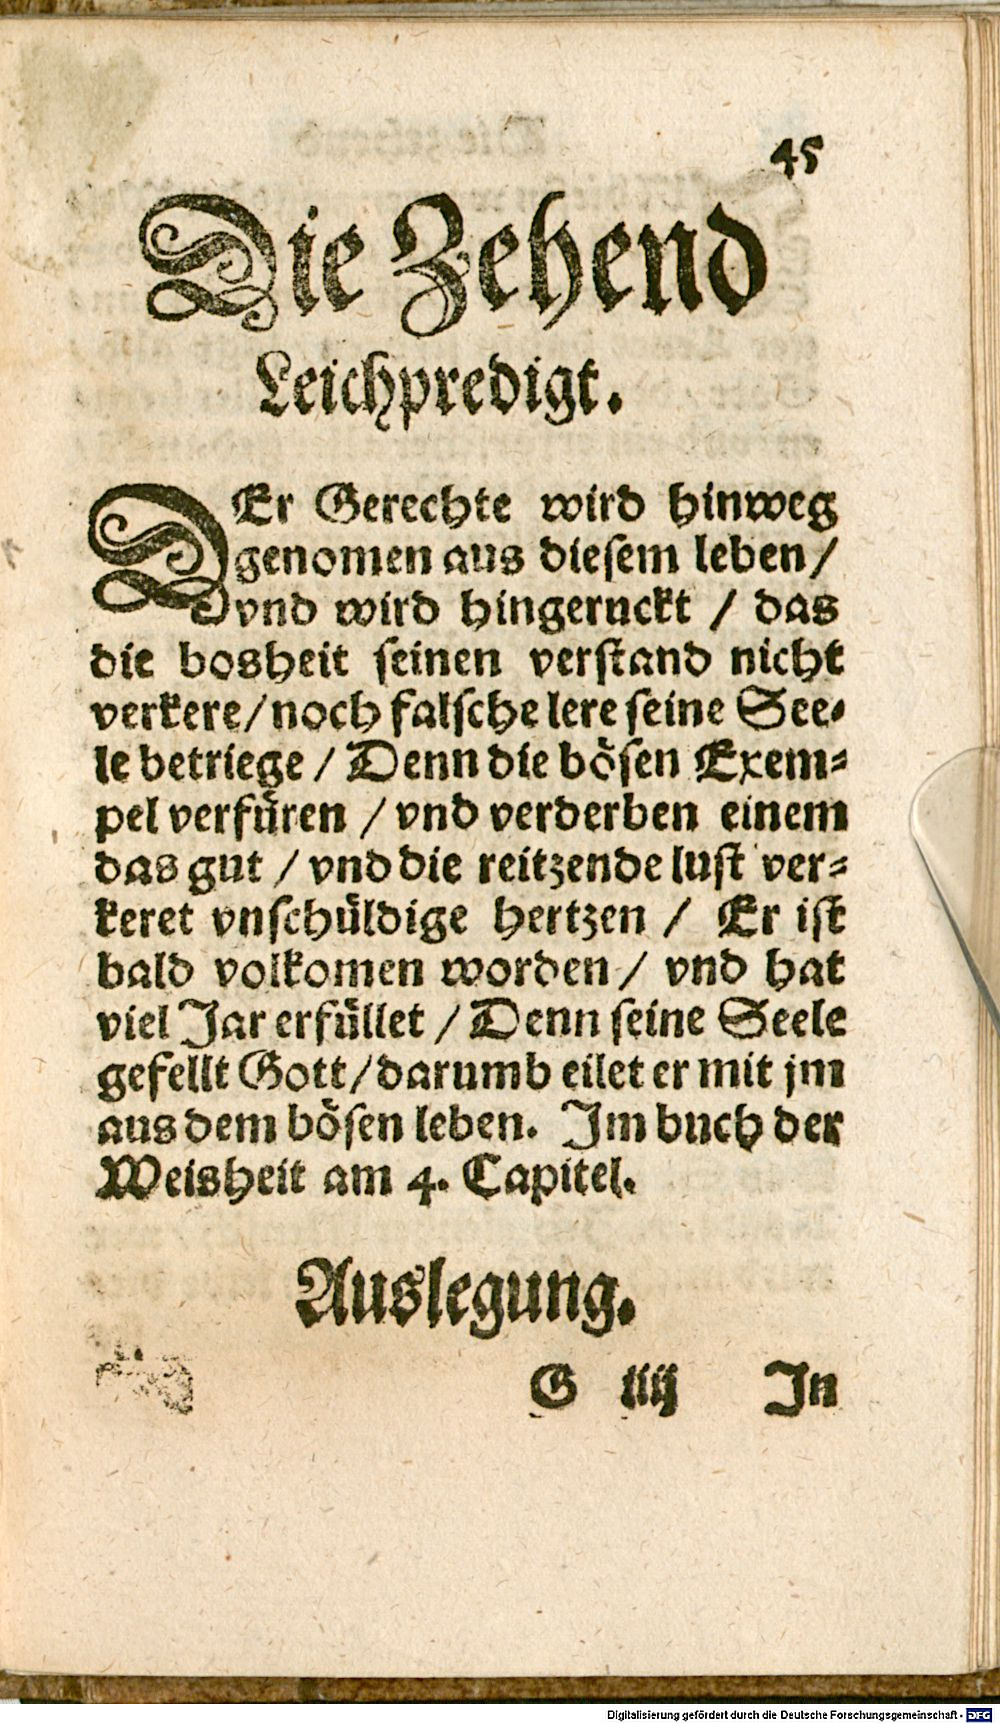 45
Die Zehend
Leichpredigt.
DEr Gerechte wird hinweg
genomen aus diesem leben/
vnd wird hingeruckt / das
die bosheit seinen verstand nicht
verkere/noch falsche lere seine See-
le betriege / Denn die bösen Exem-
pel verfüren / vnd verderben einem
das gut / vnd die reitzende lust ver-
keret vnschüldige hertzen / Er ist
bald volkomen worden / vnd hat
viel Jar erfüllet / Denn seine Seele
gefellt Gott/darumb eilet er mit jm
aus dem bösen leben. Im buch der
Weisheit am 4. Capitel.
Auslegung.
G iiij In
Digitalisierung gefördert durch die Deutsche Forschungsgemeinschaft - DFG